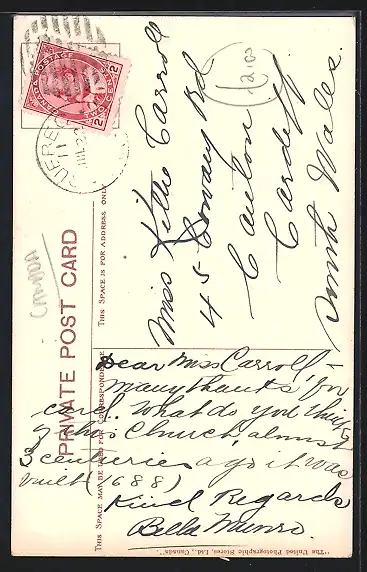 CANADA POSTAGE
2 TWO CENTS 2
QUEBEC
11
PRIVATE POST CARD
THIS SPACE MAY BE USED FOR CORRESPONDENCE
THIS SPACE IS FOR ADDRESS ONLY
Canada
Miss Kittie Carroll
45 Conway Rd
Canton
Cardiff
South Wales.
Dear Miss Carroll –
Many thanks for
card. What do you think
of this Church, almost
3 centuries ago it was
built (1688)
Kind Regards
Bella Munro.
"The United Photographic Stores, Ltd., Canada".